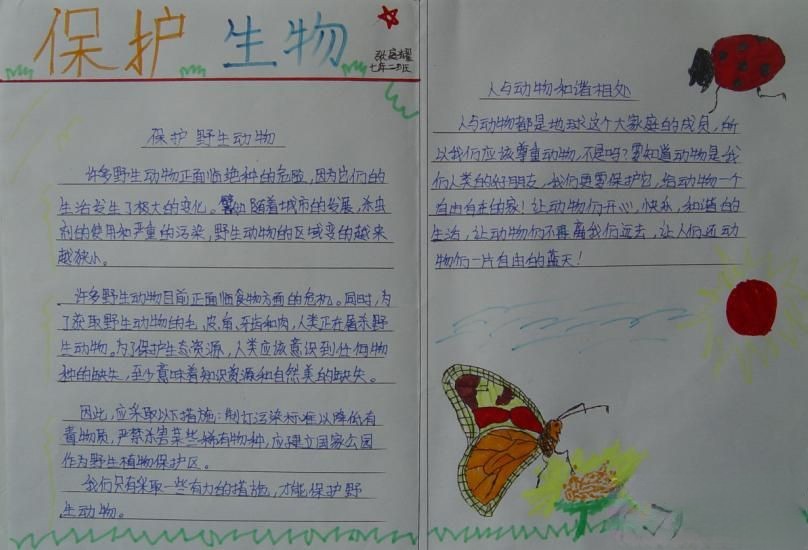 保护生物
七年二班
保护野生动物
许多野生动物正面临绝种的危险,因为它们的
生活发生了极大的变化。譬如随着城市的发展,杀虫
剂的使用和严重的污染,野生动物的区域变的越来
越狭小。
许多野生动物目前正面临食物方面的危机。同时,为
了获取野生动物的毛,皮,角,牙齿和肉,人类正在屠杀野
生动物。为了保护生态资源,人类应该意识到任何物
种的缺失,至少意味着知识资源和自然美的缺失。
因此,应采取以下措施:制订污染标准以降低有
毒物质,严禁杀害某些稀有物种,应建立国家公园
作为野生植物保护区。
我们只有采取一些有力的措施,才能保护野
生动物。
人与动物和谐相处
人与动物都是地球这个大家庭的成员,所
以我们应该尊重动物,不是吗?要知道动物是我
们人类的好朋友,我们更要保护它,给动物一个
自由自在的家!让动物们开心,快乐,和谐的
生活,让动物们不再离我们远去,让人们还动
物们一片自由的蓝天!